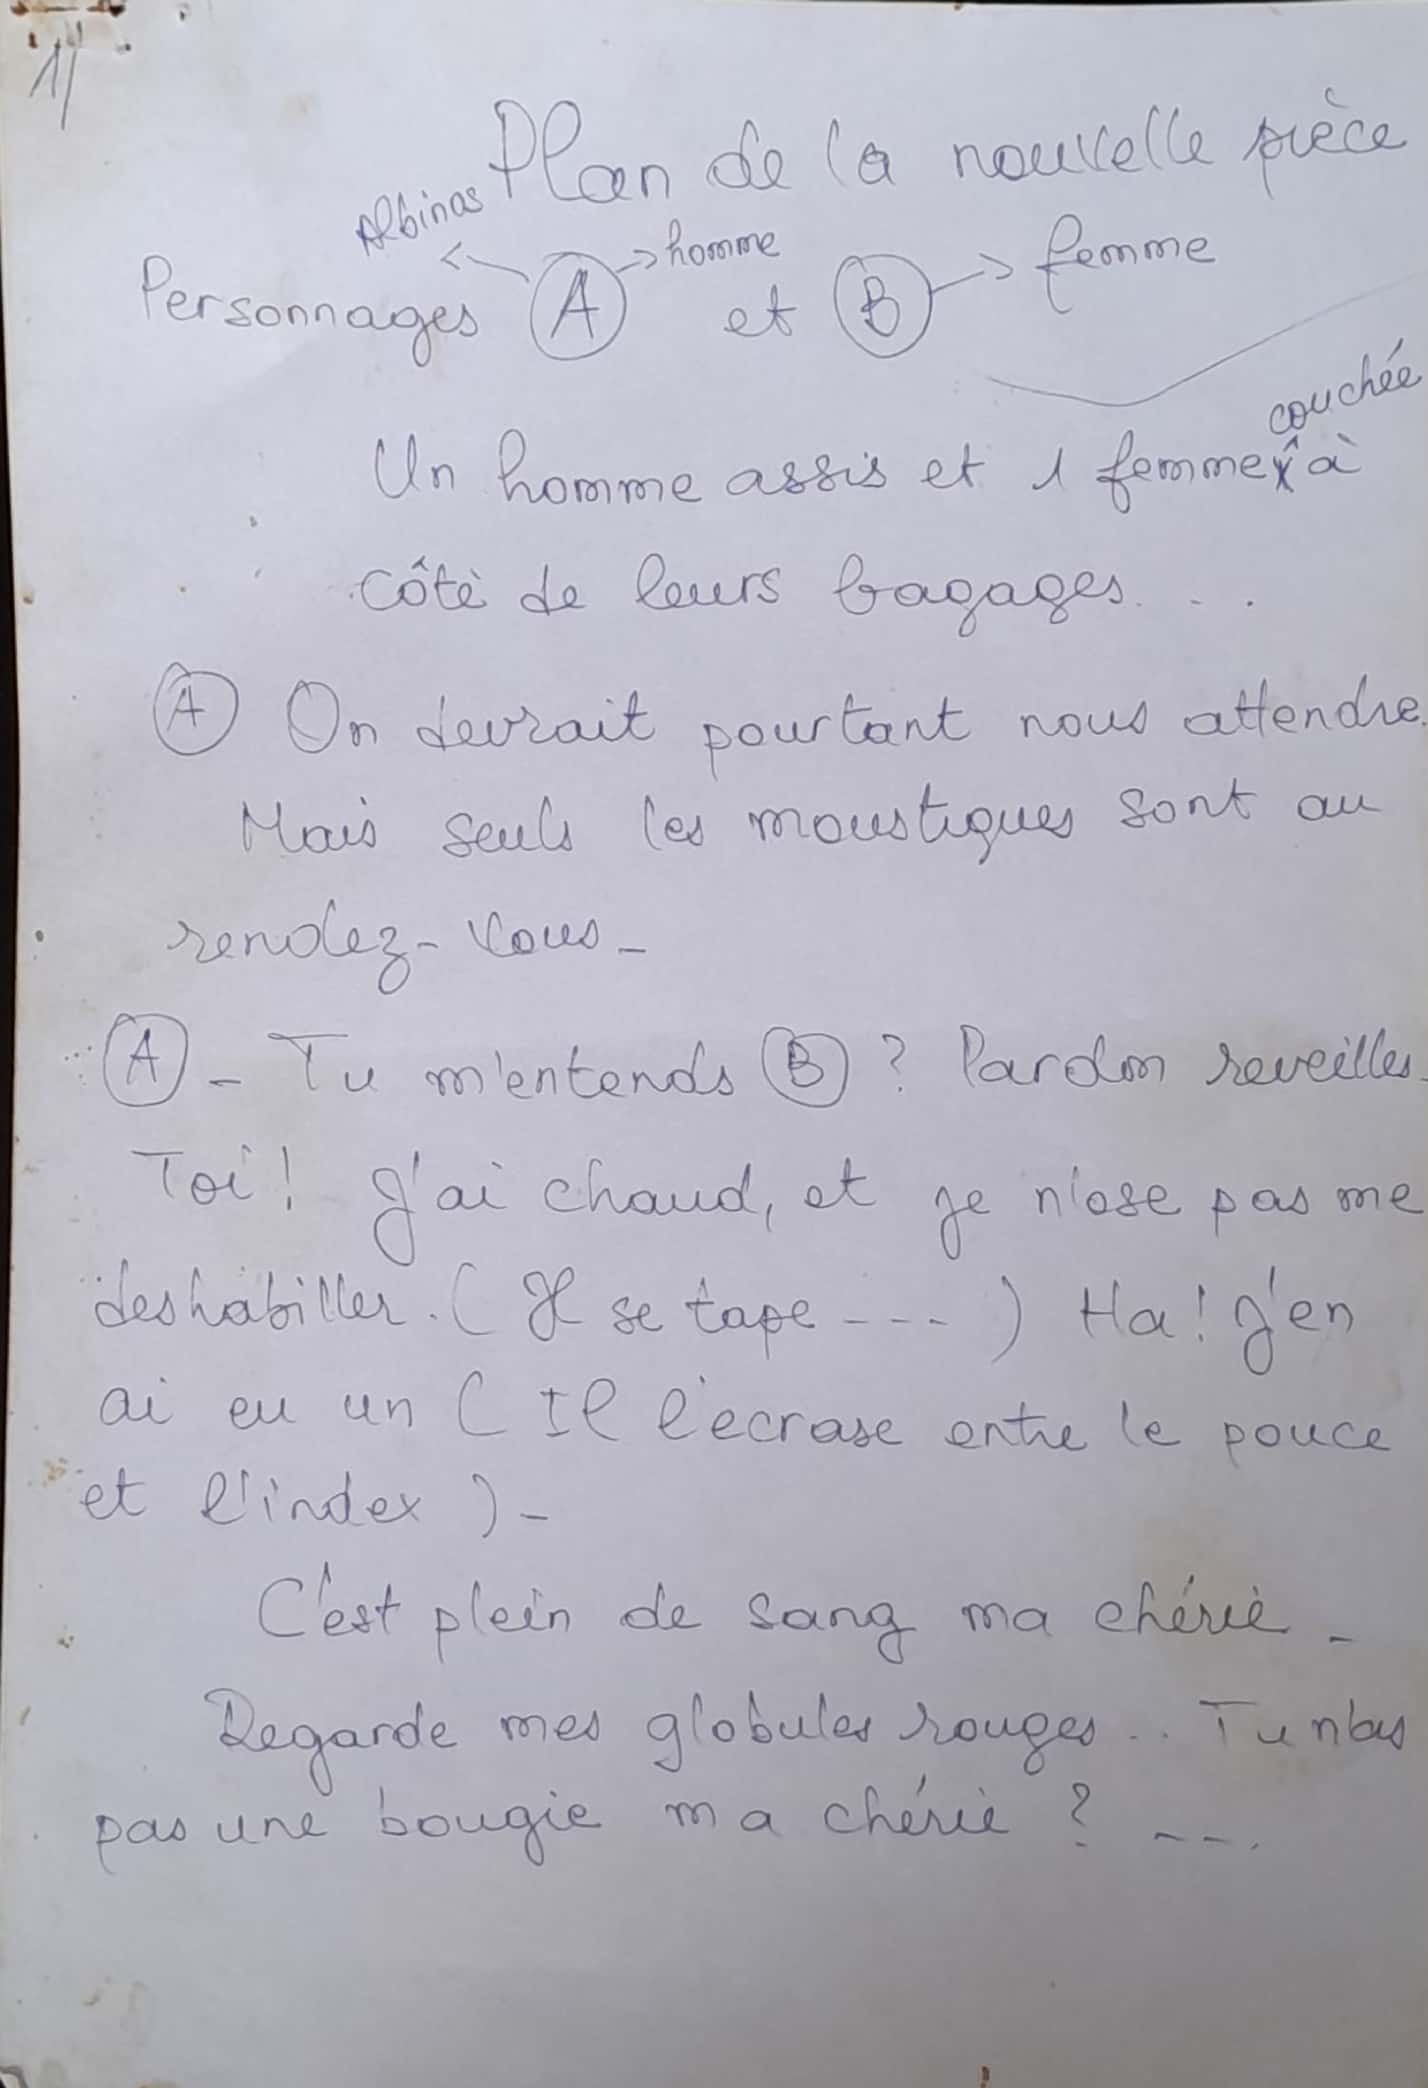 1/
Plan de la nouvelle pièce
Albinas
Personnages A → homme et B → femme
couchée
Un homme assis et 1 femme à
côté de leurs bagages...
A On devrait pourtant nous attendre.
Mais seuls les moustiques sont au
rendez-vous -
A - Tu m'entends B ? Pardon reveilles-
Toi ! J'ai chaud, et je n'ose pas me
deshabiller. (Il se tape ---- ) Ha ! J'en
ai eu un ( Il l'ecrase entre le pouce
et l'index ) -
C'est plein de sang ma chérie -
Regarde mes globules rouges... Tu n'as
pas une bougie ma chérie ? ---.